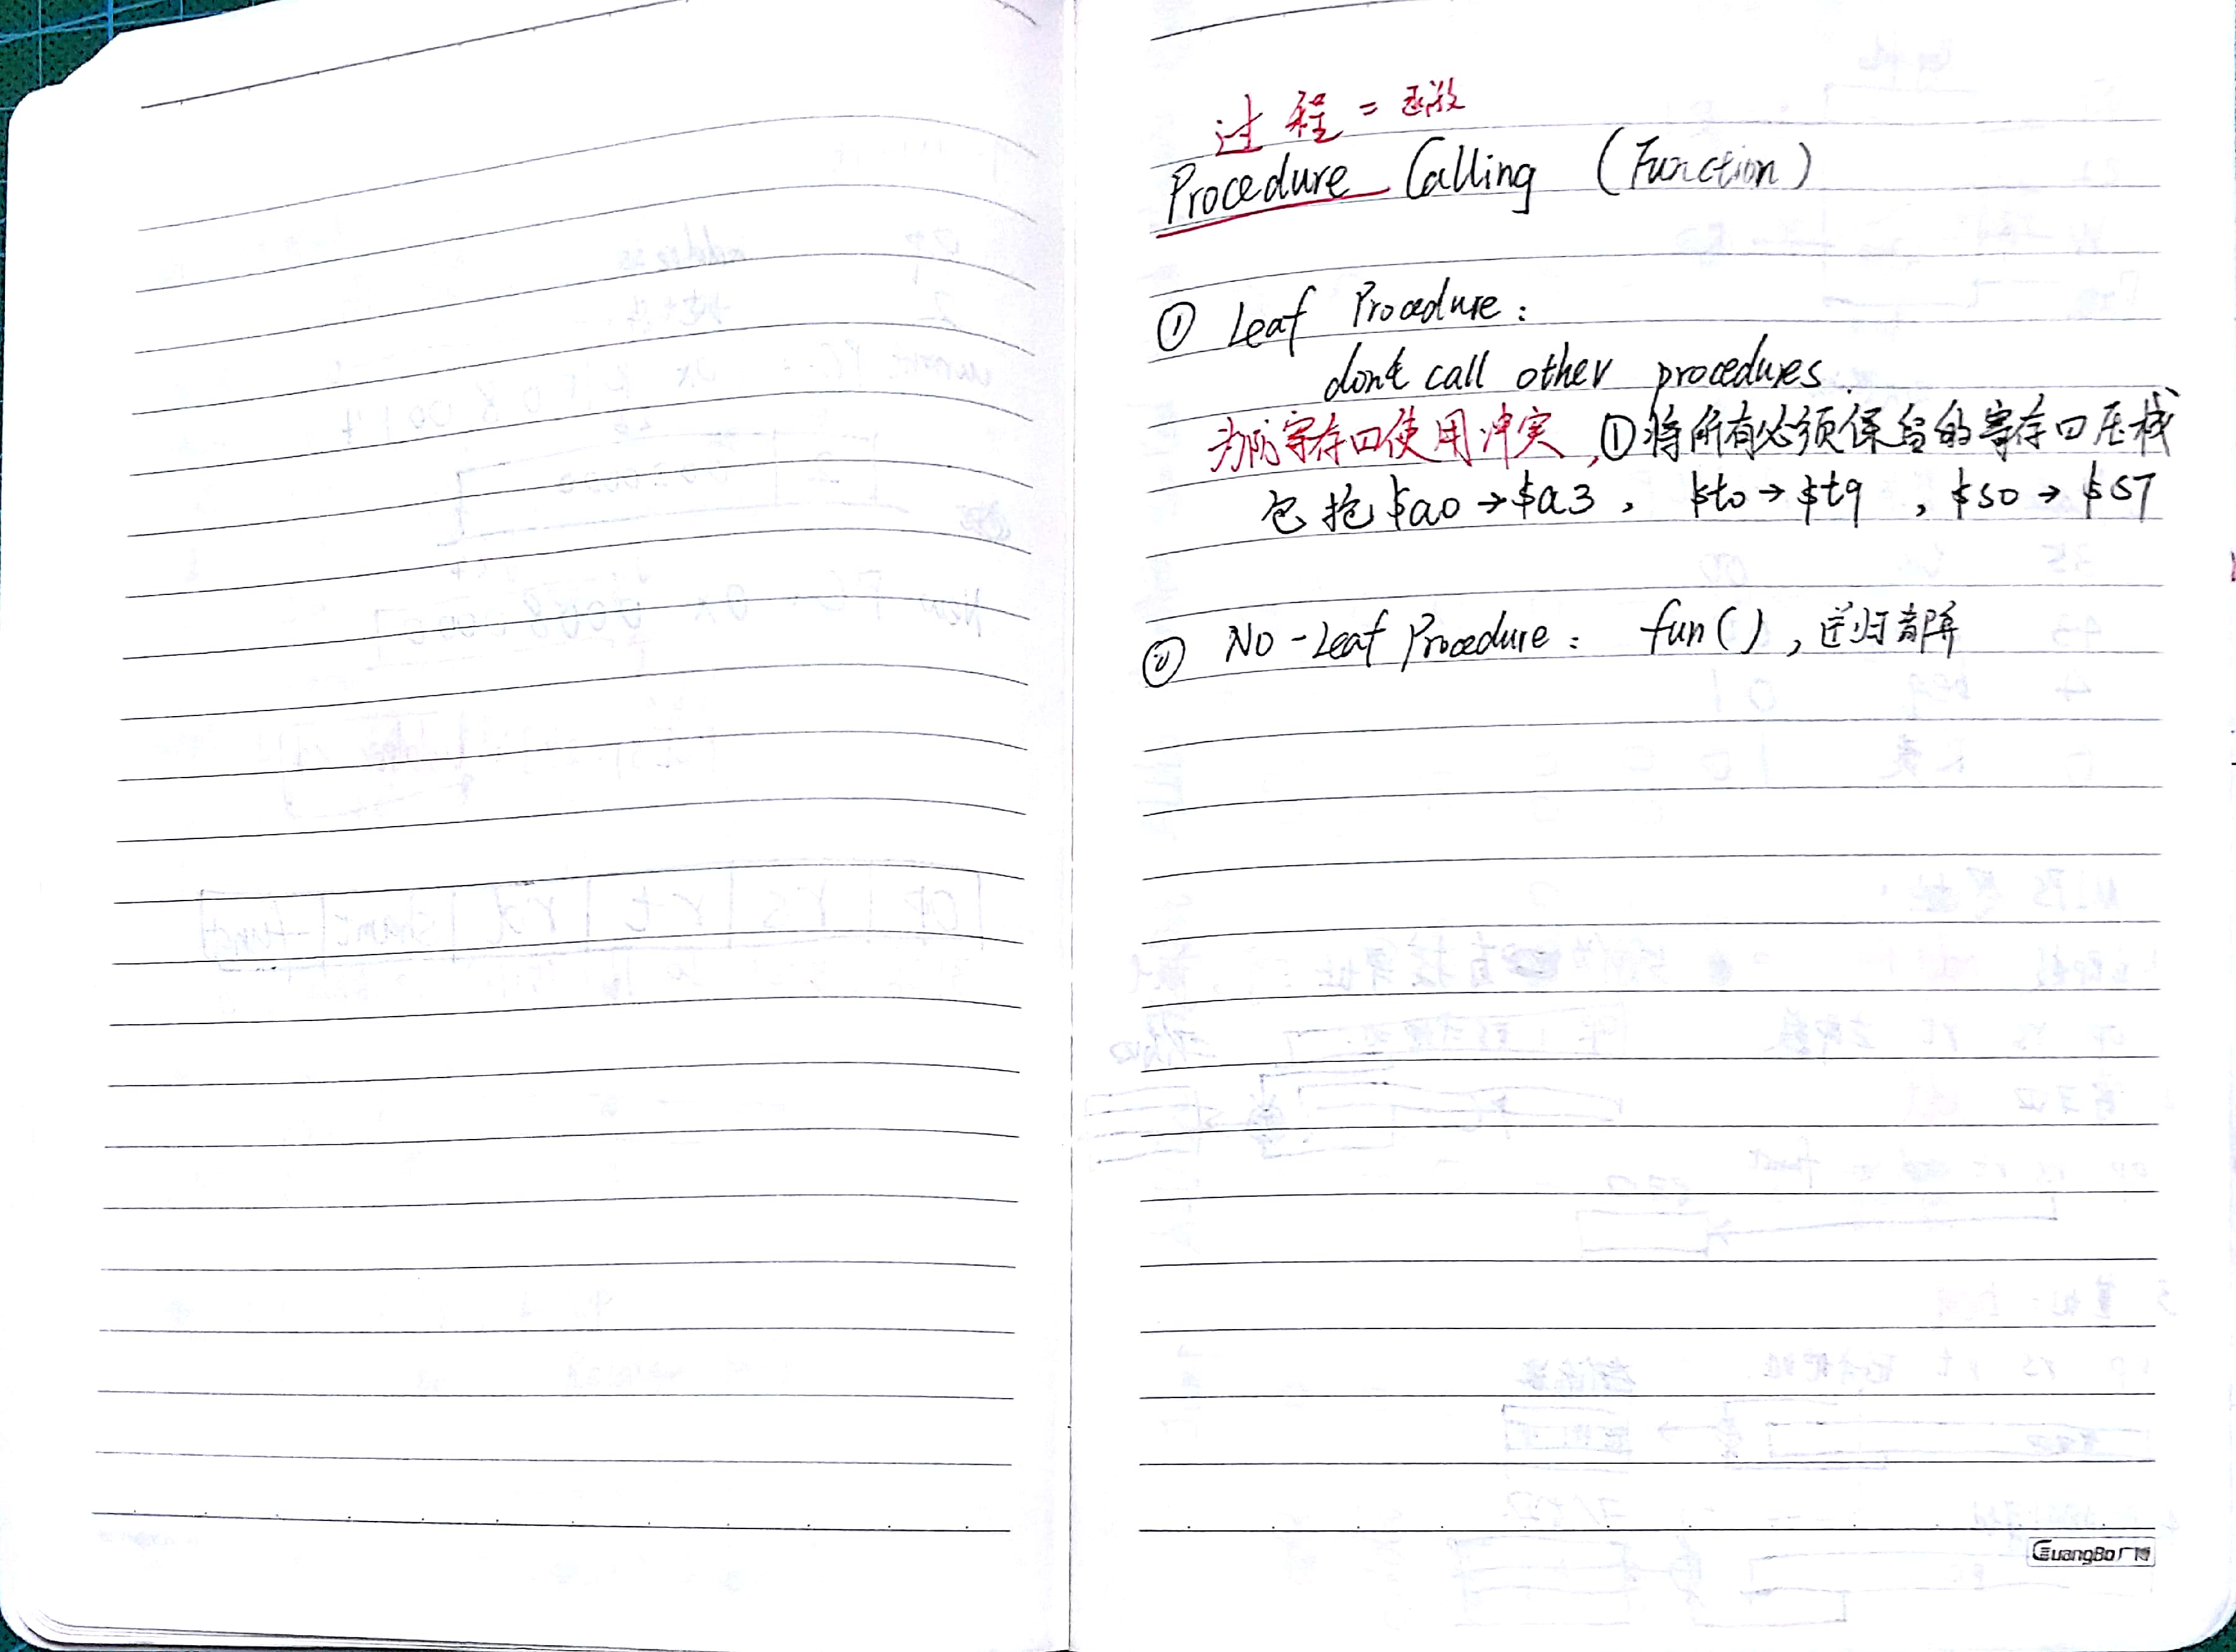 过程 = 函数
Procedure Calling (Function)
① Leaf Procedure :
don't call other procedures.
为防寄存口使用冲突, ①将所有必须保留的寄存口压栈
包括 $a0 → $a3, $t0 → $t9, $s0 → $s7
② No-Leaf Procedure : fun(), 递归
GuangBo广博